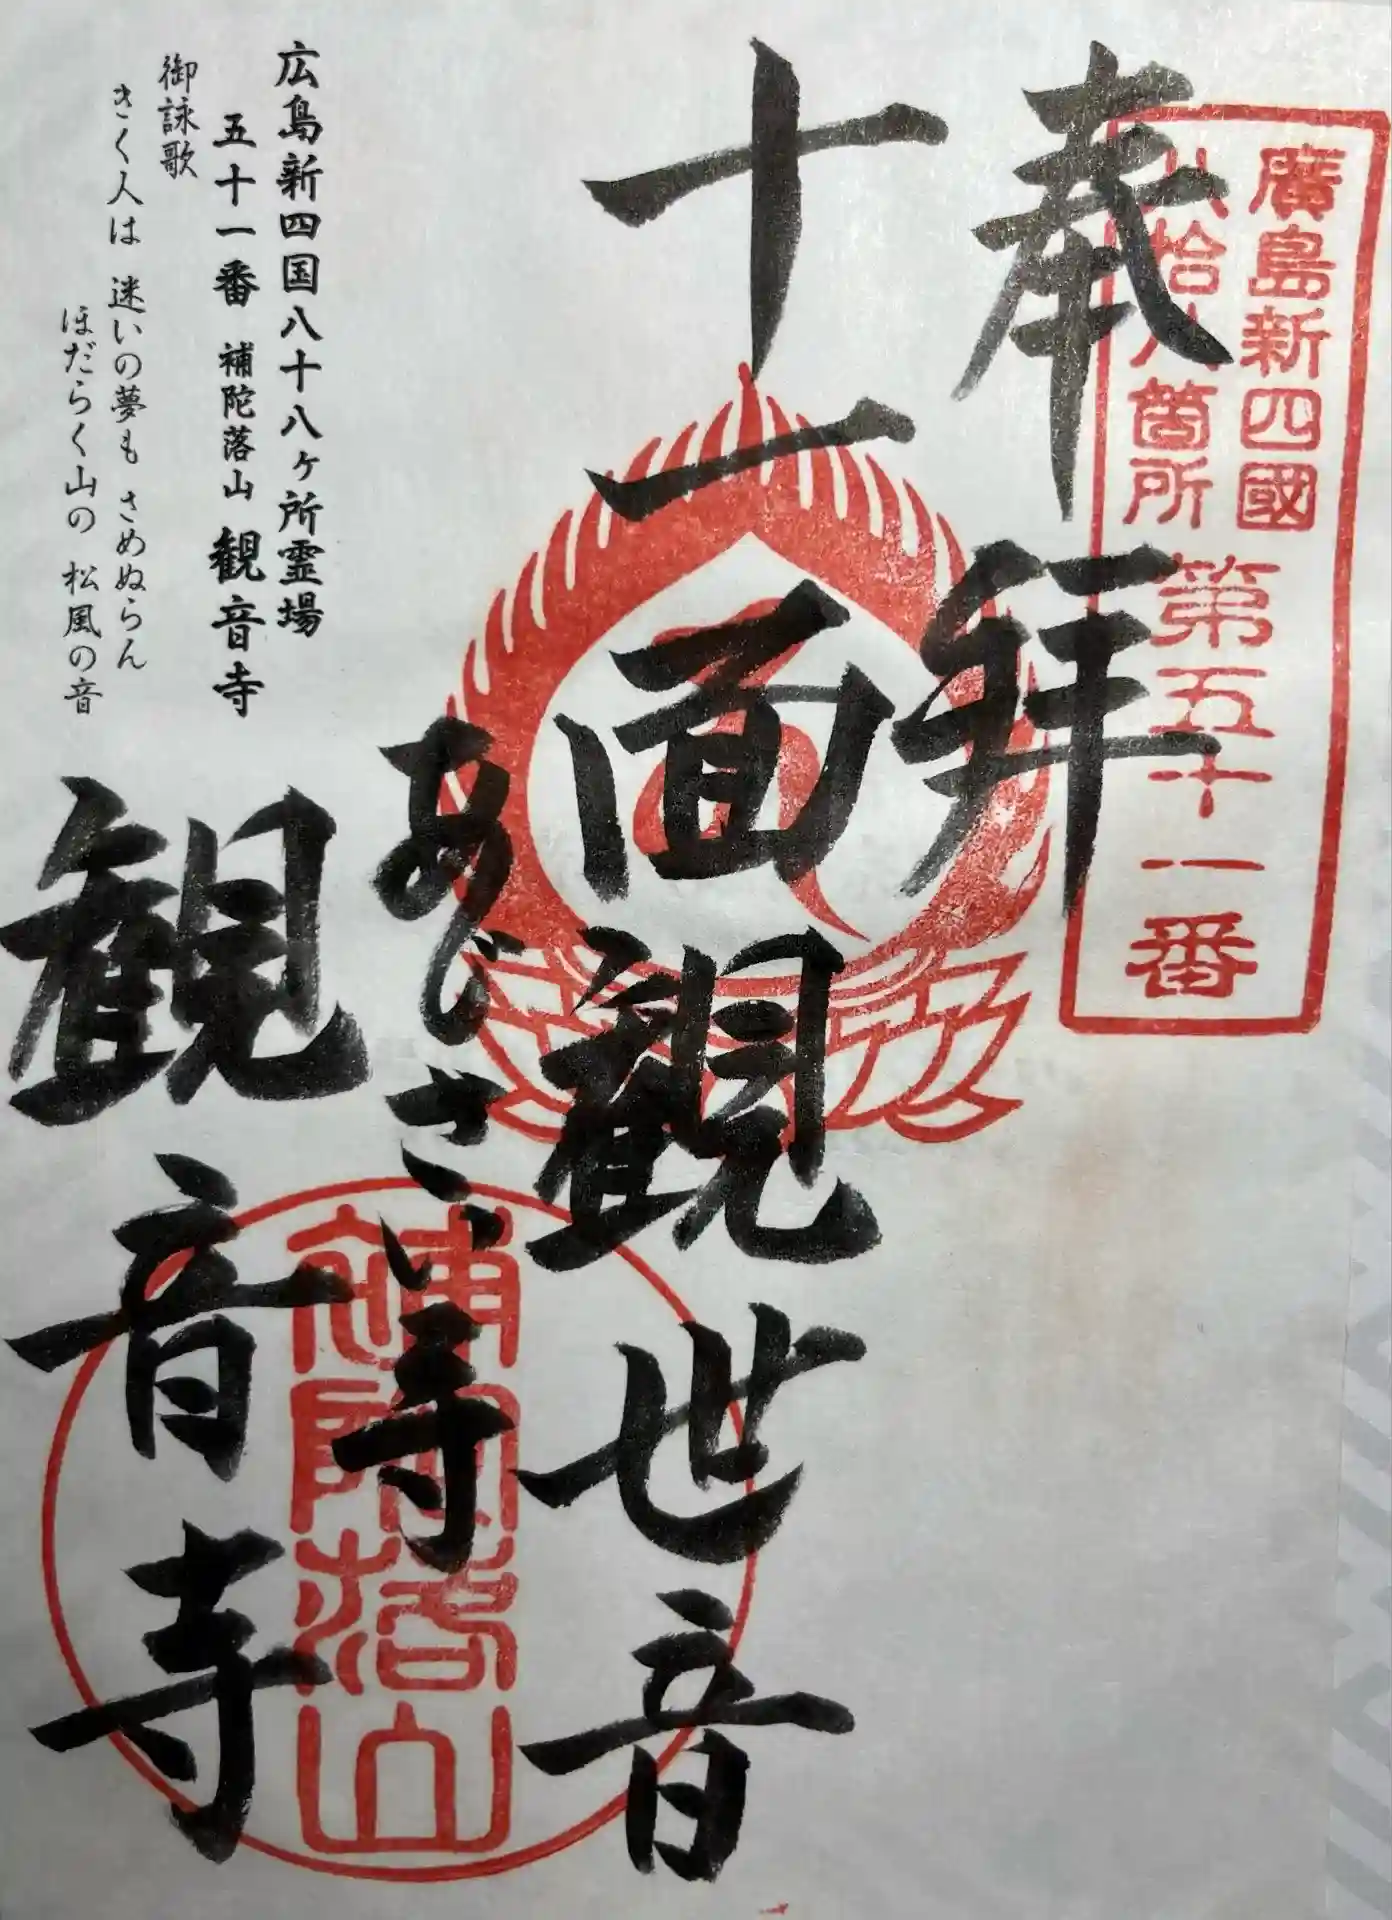 奉拝
廣島新四國
八拾八箇所
第五十一番
十一面観世音
あじさい寺
観音寺
補陀落山
広島新四国八十八ヶ所霊場
五十一番 補陀落山 観音寺
御詠歌
きく人は 迷いの夢も さめぬらん
ほだらく山の 松風の音